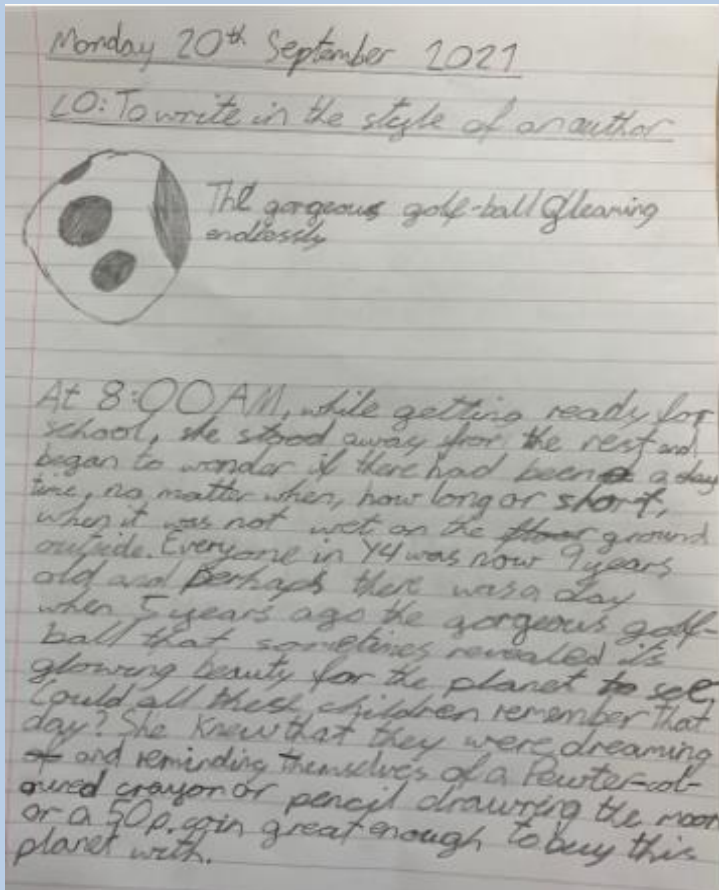 Monday 20th September 2021
LO: To write in the style of an author
The gorgeous golf-ball gleaming
endlessly
At 8:00 AM, while getting ready for
school, she stood away from the rest and
began to wonder if there had been a day
time, no matter when, how long or short,
when it was not wet on the floor ground
outside. Everyone in Y4 was now 9 years
old and Perhaps there was a day
when 5 years ago the gorgeous golf-
ball that sometimes revealed its
glowing beauty for the planet to see,
Could all these children remember that
day? She knew that they were dreaming
and reminding themselves of a Pewter-col-
oured crayon or pencil drawring the moon
or a 50p. coin great enough to buy this
planet with.